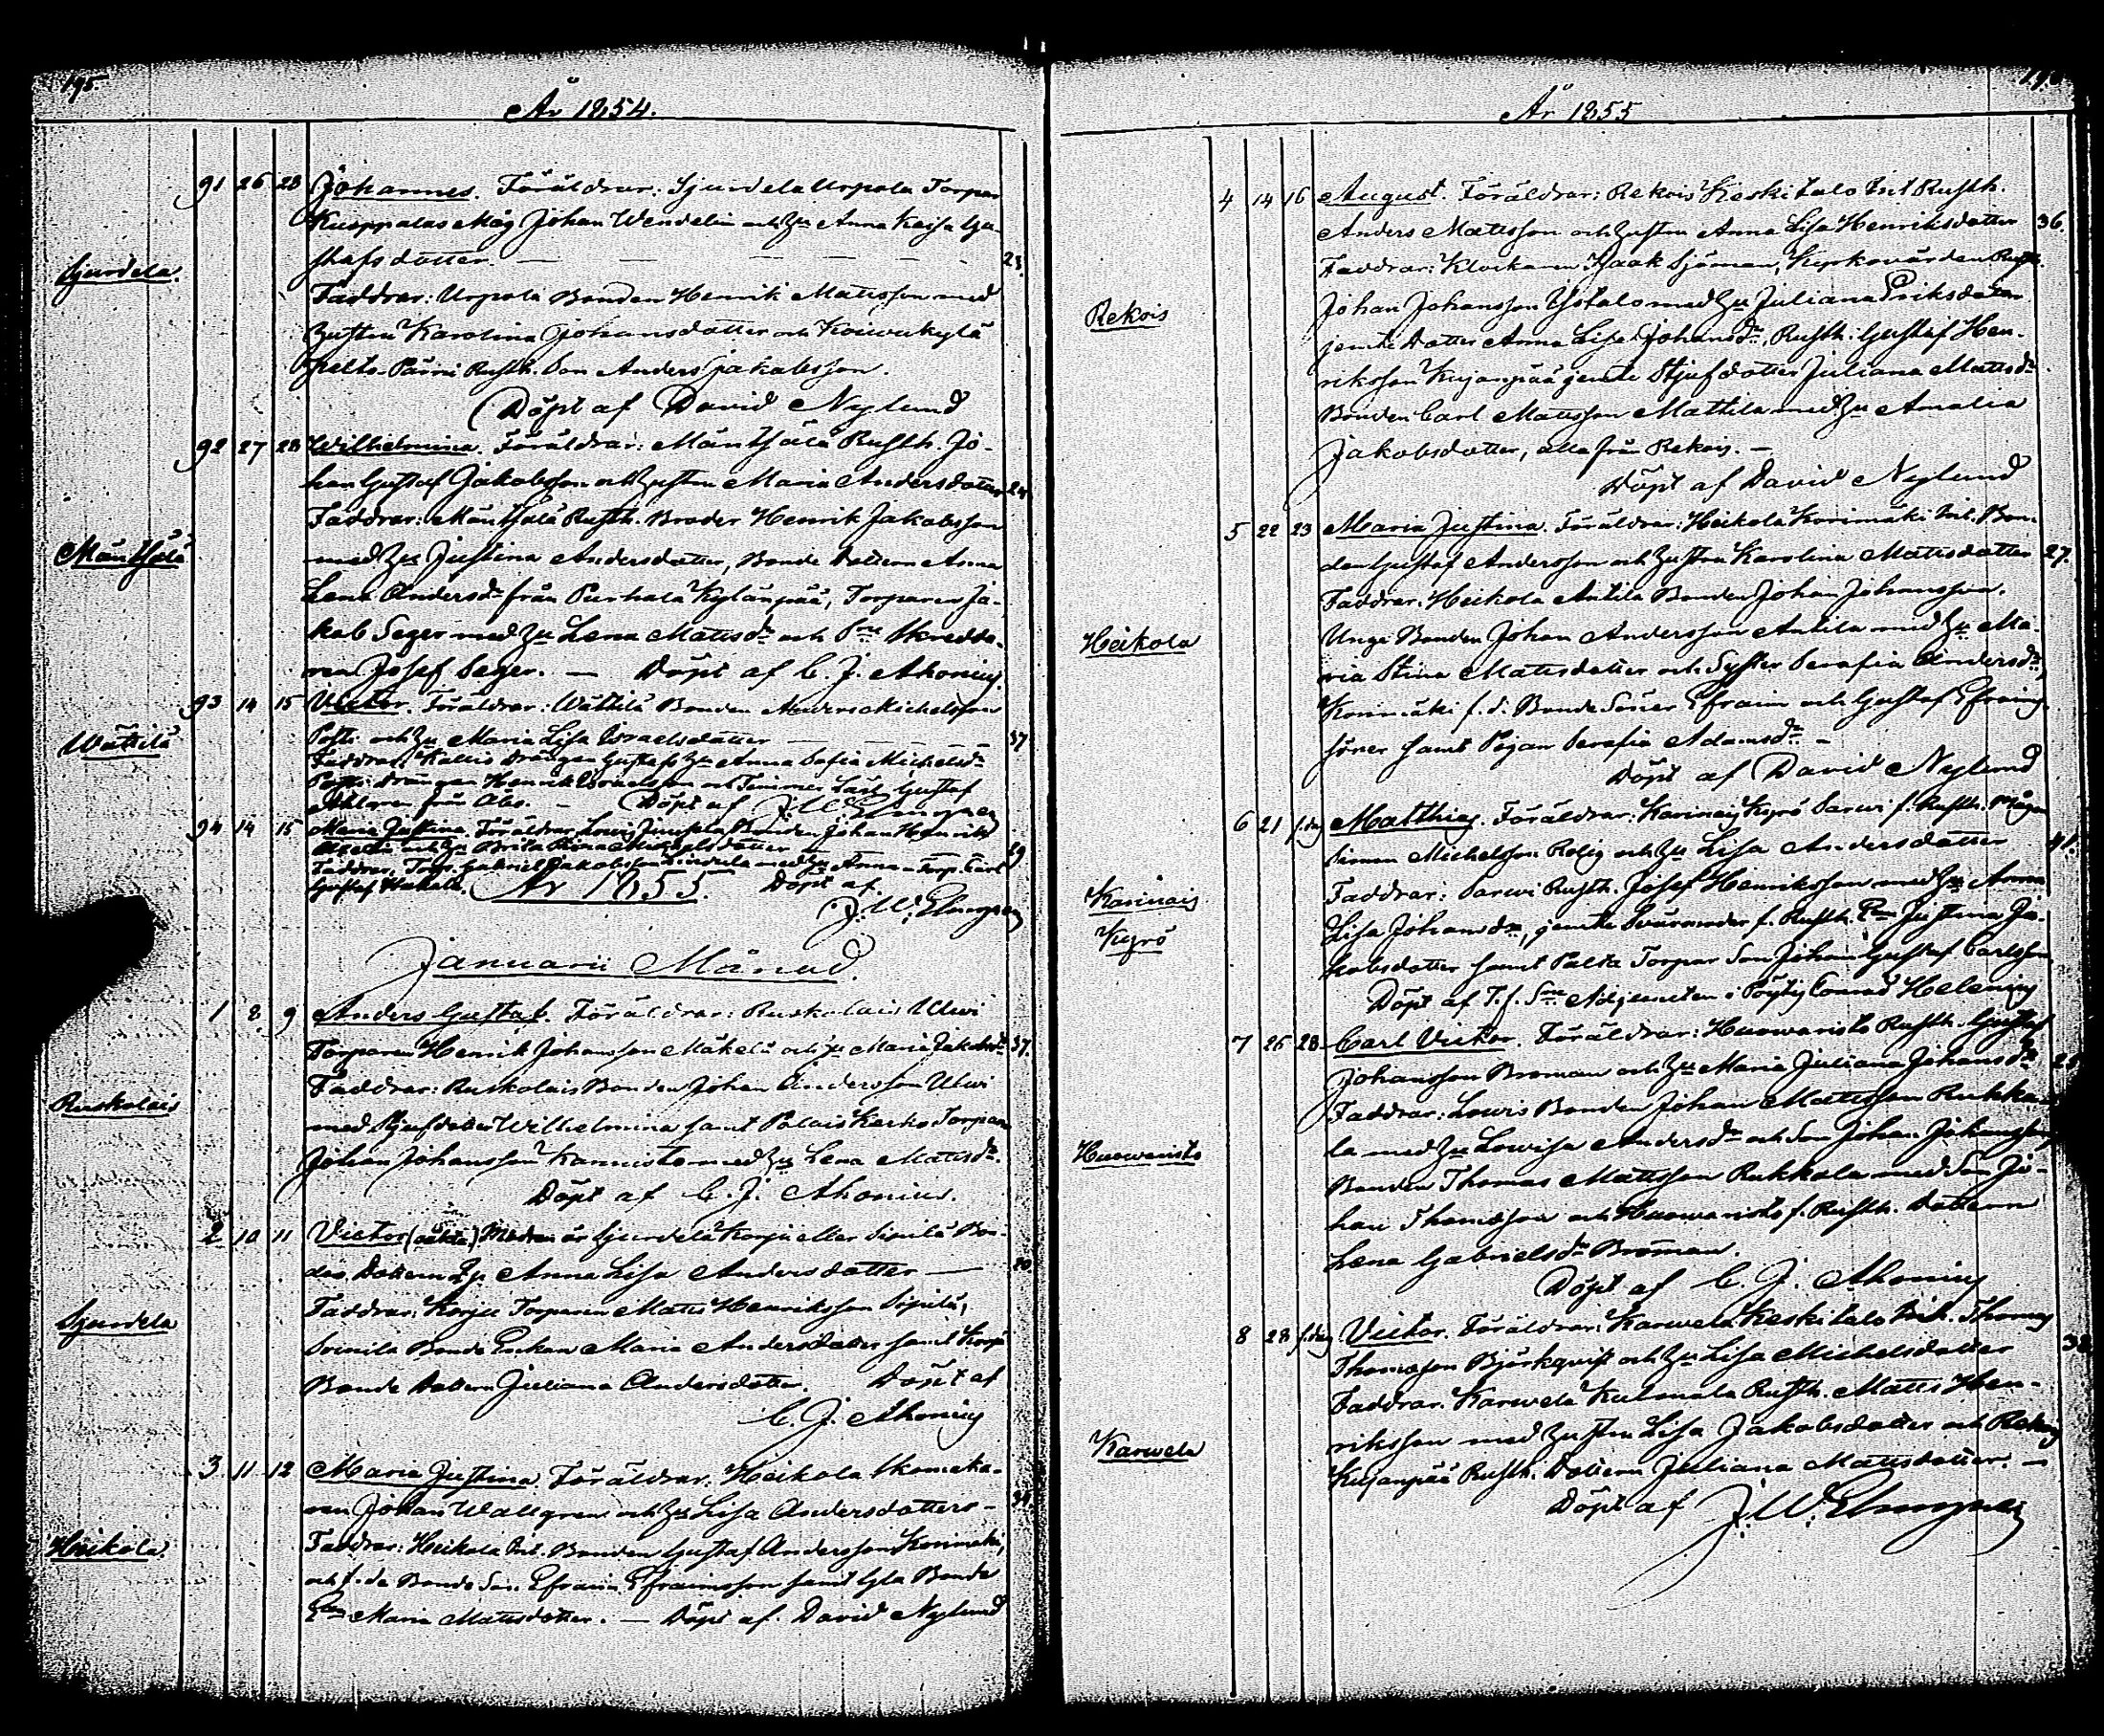 195.
År 1854.
91 26 28 Johannes. Föräldrar: Sjurdela Urpola Torpar
Kuoppalas Måg Johan Wendelin och Hu Anna Kaisa Gu-
stafsdotter. 23.
Sjurdela.
Faddrar: Urpola Bonden Henrik Mattsson med
Hustru Karolina Johansdotter och Koiwukylä
Pelto-Pärri Rusth. Son Anders Jakobsson.
Döpt af David Nylund
92 27 28 Wilhelmina. Föräldrar: Mäntsälä Rusth. Jo-
han Gustaf Jakobsson och Hustru Maria Andersdotter 24
Faddrar: Mäntsälä Rusth. Broder Henrik Jakobsson
Mäntsälä
med Hu Justina Andersdotter, Bonde Dottern Anna
Lena Andersdr från Purhala Kylänpää, Torparen Ja-
kob Seger med Hu Lena Mattsdr och Skredda-
ren Josef Seger. — Döpt af C. J. Ahonius.
93 14 15 Victor. Föräldrar: Wättilä Bonden Anders Michelsson
Wättilä
och Hu Maria Lisa Israelsdotter 37
Faddrar: Kallis Drängen Gustafs Hu Anna Sofia Michelsdr
drängen Henrik Israelsson och Timmer Lärl. Gustaf
från Åbo. — Döpt af J. W. Elmgren
94 14 15 Maria Justina. Föräldrar: Lowis Juusela Bonden Johan Henrik
och Hu Brita Stina Michelsdotter 29
Faddrar: Torp. Gabriel Jakobsson med Hu Anna — Torp. Carl
Gustaf Hakala. Döpt af
År 1855.
J. W. Elmgren
Januarii Månad.
1 8 9 Anders Gustaf. Föräldrar: Ruskolais Ulwi
Torparen Henrik Johansson Mäkelä och Hu Maria Jakobsdr 37.
Faddrar: Ruskolais Bonden Johan Andersson Ulwi
Ruskolais
med Stjufdotter Wilhelmina samt Palais Karko Torparen
Johan Johansson Kannisto med Hu Lena Mattsdr.
Döpt af C. J. Ahonius.
2 10 11 Victor (oäkta) Modren är Sjurdelä Korpi eller Sipilä Bon-
des Dottern Anna Lisa Andersdotter — 20.
Faddrar: Korpi Torparen Matts Henriksson Sipilä,
Sjurdela
Soinila Bonde Enkan Maria Andersdotter samt Korpi
Bonde Dottern Juliana Andersdotter. Döpt af
C. J. Ahonius
3 11 12 Maria Justina. Föräldrar: Heikola Skomaka-
ren Johan Wallgren och Hu Lisa Andersdotter — 34.
Faddrar: Heikola Inl. Bonden Gustaf Andersson Korimäki,
Heikola.
och f. de Bonde Son Efraim Efraimsson samt Yla Bonde
Maria Mattsdotter. — Döpt af David Nylund
År 1855
4 14 16 August. Föräldrar: Rekois Keskitalo Inl. Rusth.
Anders Mattsson och Hustru Anna Lisa Henriksdotter 36.
Faddrar: Klockaren Isaak Sjöman, Kyrkovärden Rusth.
Rekois
Johan Johansson Ystalo med Hu Juliana Eriksdotter
jemte Dotter Anna Lisa Johansdr, Rusth. Gustaf Hen-
riksson Kujanpää jemte Stjufdotter Juliana Mattsdr
Bonden Carl Mattsson Mattila med Hu Amalia
Jakobsdotter, alla från Rekois. —
Döpt af David Nylund
5 22 23 Maria Justina. Föräldrar: Heikola Korimäki Inl. Bon-
den Gustaf Andersson och Hustru Karolina Mattsdotter 27.
Faddrar: Heikola Antila Bonden Johan Johansson.
Heikola
Unge Bonden Johan Andersson Antila med Hu Ma-
ria Stina Mattsdotter och Syster Serafia Andersdr
Korimäki f. d. Bonde Söner Efraim och Gustaf Efraims
söner samt Pigan Serafia Adamsdr. —
Döpt af David Nylund
6 21 s. dag Matthias. Föräldrar: Karinais Kyrö Sarwi f. Rusth. Mågen
Simon Michelsson Rolig och Hu Lisa Andersdotter 41.
Faddrar: Sarwi Rusth. Josef Henriksson med Hu Anna
Karinais
Kyrö
Lisa Johansdr, jemte Svärmoder f. Rusth. Justina Ja-
kobsdotter samt Palta Torpar Son Johan Gustaf Carlsson
Döpt af T. f. Adjuncten i Pöytis Conrad Helenius
7 26 28 Carl Victor. Föräldrar: Huowaristo Rusth. Gustaf
Johansson Broman och Hu Maria Juliana Johansdr
Faddrar: Lowis Bonden Johan Mattsson Rukka-
Huowaristo
la med Hu Lowisa Andersdr och Son Johan Johansson
Bonden Thomas Mattsson Rukkala med Son Jo-
han Thomasson och Huowaristo f. Rusth. Dottern
Lena Gabrielsdr Broman.
Döpt af C. J. Ahonius
8 28 s. dag Victor. Föräldrar: Karwela Keskitalo Inh. Thomas
Thomasson Björkqvist och Hu Lisa Michelsdotter 38.
Faddrar: Karwela Kulmala Rusth. Matts Hen-
riksson med Hustru Lisa Jakobsdotter och Rekois
Karwela
Kujanpää Rusth. Dottern Juliana Mattsdotter. —
Döpt af J. W. Elmgren